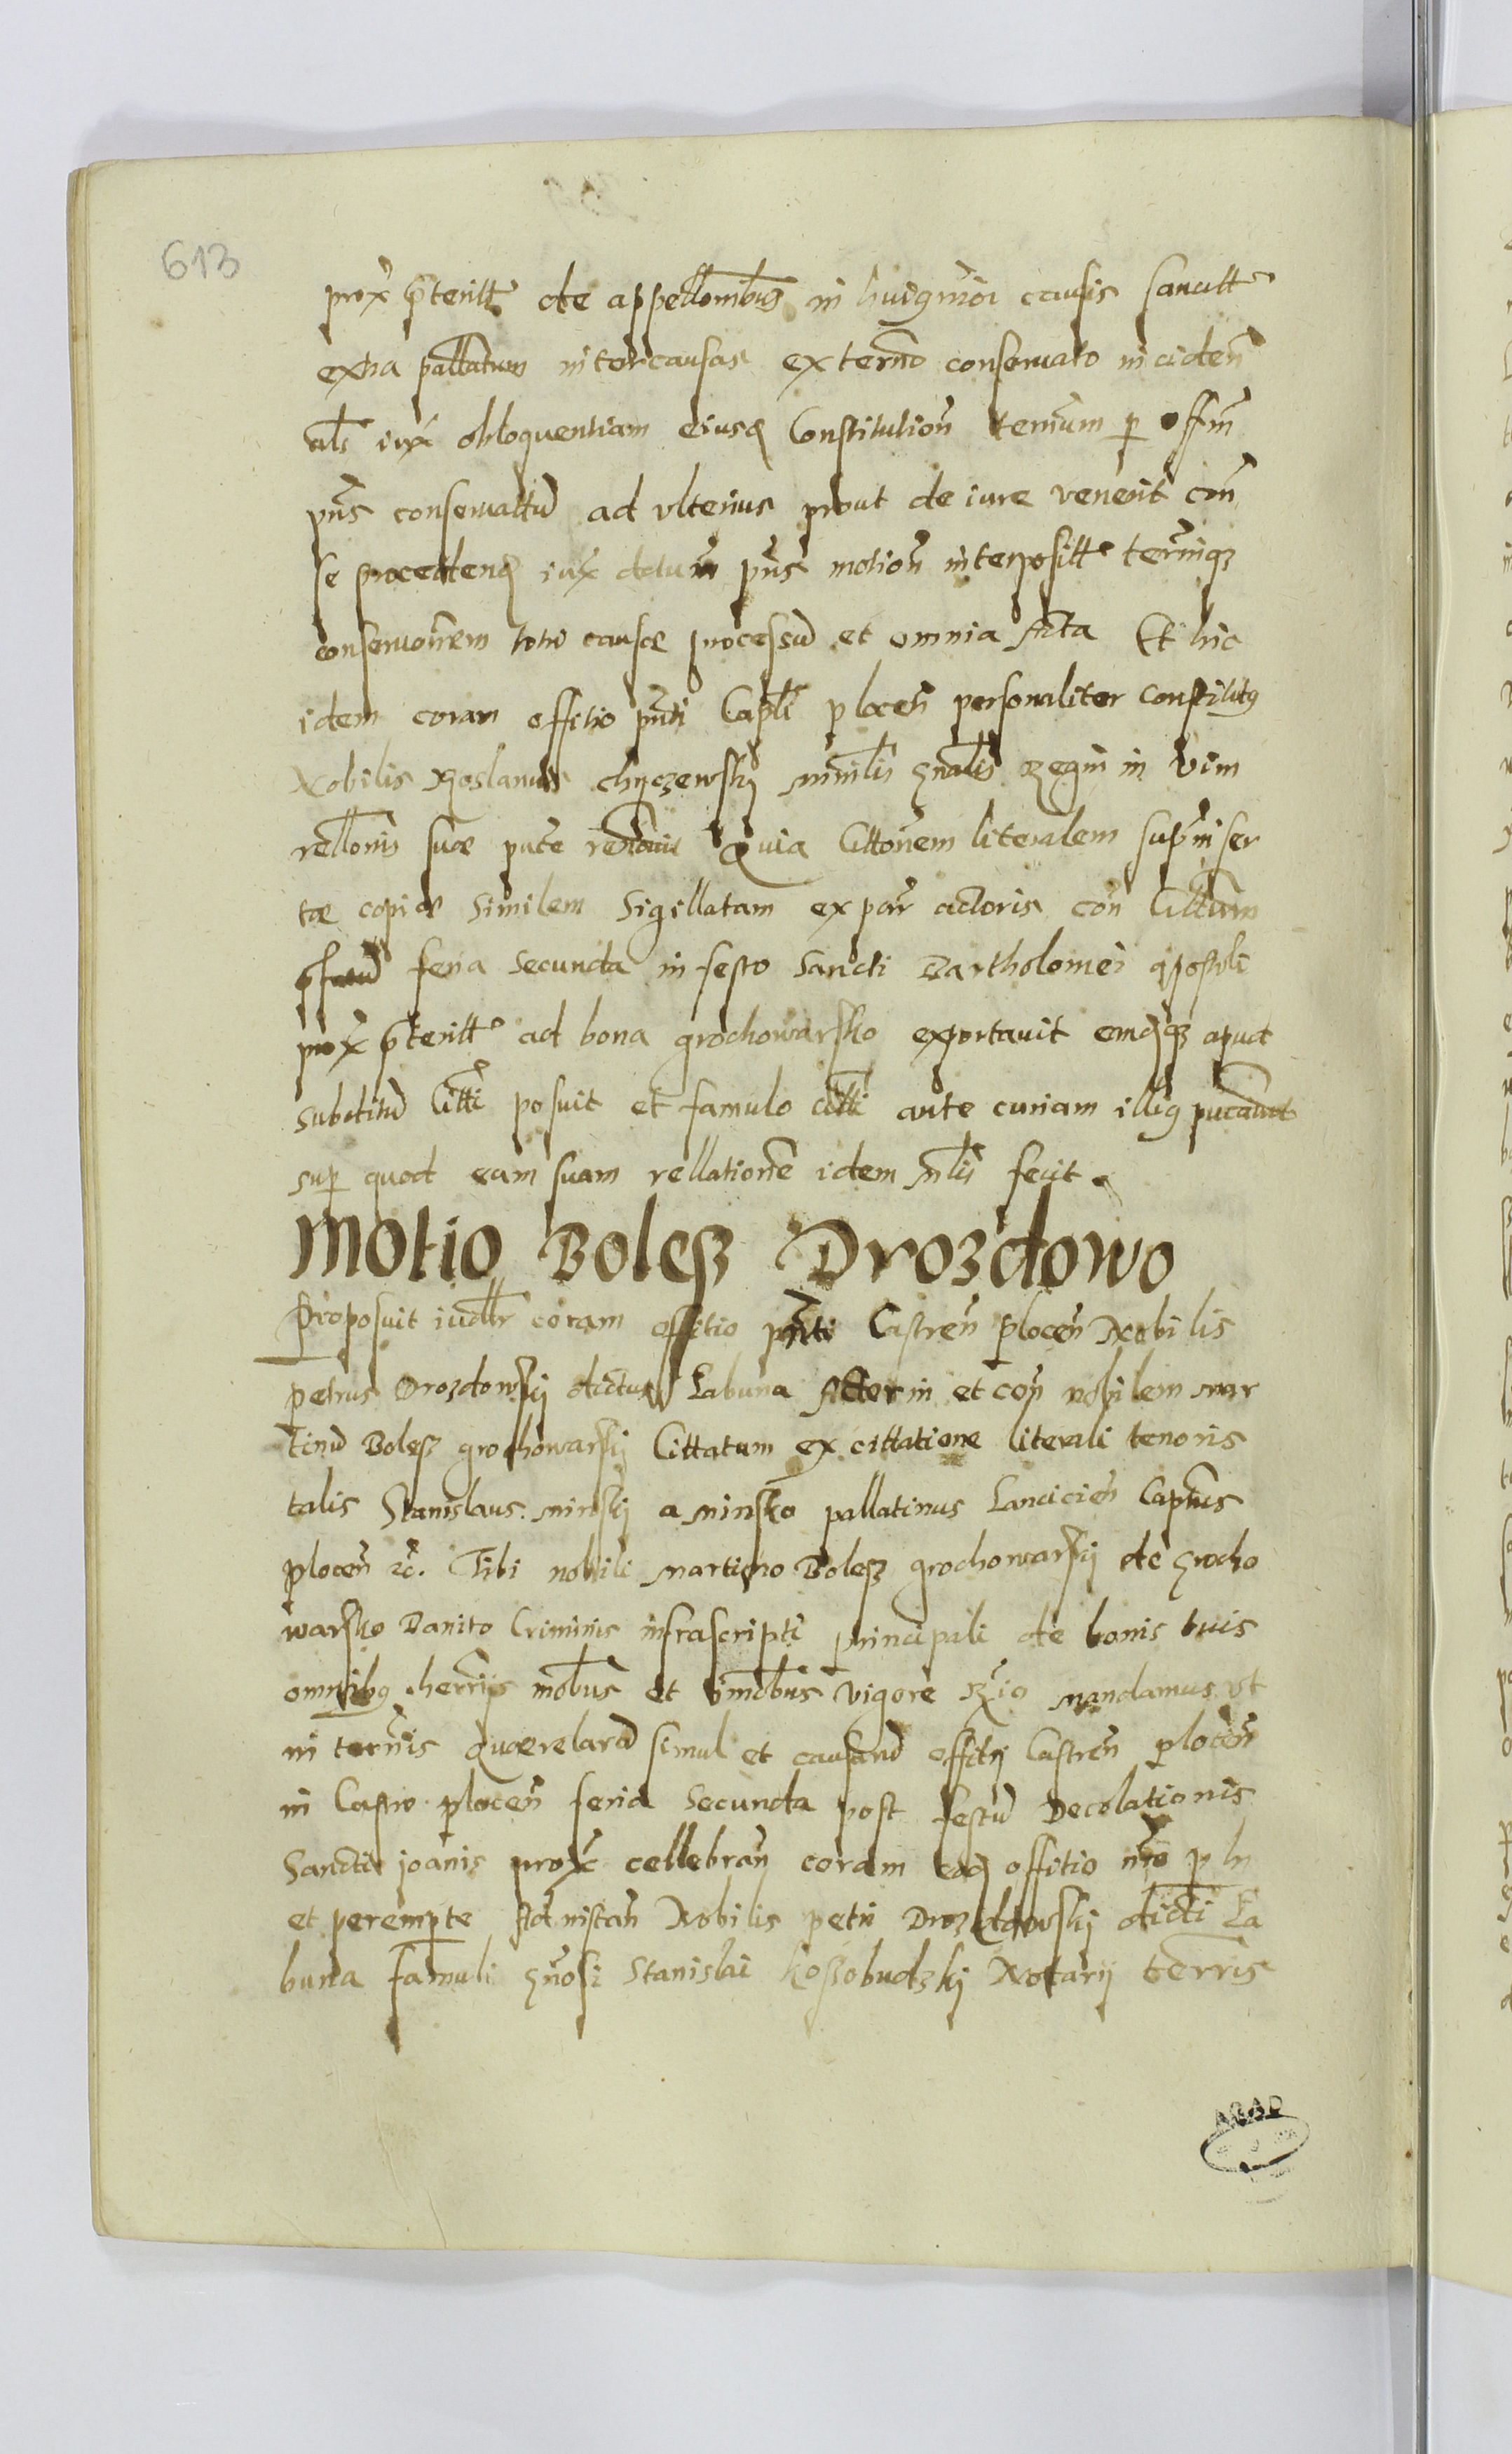 613
prox p̄teritt de appellōnibus in huiusmōi causis sancitt
extra pallatium inter causas ex termīo conservato inciden̄
als iux obloquentiam eiusd Constitution̄ termīum p offīm
pn̄s conservattū ad ulterius prout de iure venerit con̄
se procedend iux datum pn̄s motion̄ interposittę termīqz
conservōnem totū causæ processū et omnia Acta Et hic
idem coram offitio pn̄ti Capłi plocen̄ personaliter Constitutus
Nobilis Roslanus chyczewskj mīnłis gn̄alis Regni in vim
rellōnis suæ pucte recōnuit Quia Cittōnem literalem supinser
tæ copiæ similem Sigillatam ex par actoris con̄ Cittatum
p̄fatū feria Secunda in festo Sancti Bartholomei apostoli
prox p̄teritt ad bona grochowarsko exportavit eamdqz apud
subditū Citti posuit et famulo citti ante curiam illius pucavit
sup quod eam suam rellationē idem mn̄lis fecit.
Motio Bolesz Drozdowo
Proposuit iudltr coram offitio pn̄ti Castren̄ plocen̄ Nobilis
petrus Drozdowskij dictus Łabuna Actor in et con̄ nobilem mar
tinū Bolesz grochowarskij Cittatum ex cittatione literali tenoris
talis Stanislaus minskij a minsko pallatinus Lancicien̄ Captn̄us
plocen̄ zc̄. Tibi nobili martino Bolesz grochowarskij de grocho
warsko Banito Criminis infrascripti principali de bonis tuis
omnibus herrijs mobus et imobus vigore Rio mandamus vt
in termis Quærelarū simul et causarū offitij Castren̄ plocen̄
in Castro plocen̄ feria Secunda post festū Decolationis
Sancti joanis prox cellebran̄ coram eod offitio nr̄o p ln
et perempte Ad instan̄ Nobilis petri Drozddowskij dicti Ła
buna famuli gn̄osi Stanislai kossobudzkj Notarij terris
AGAD